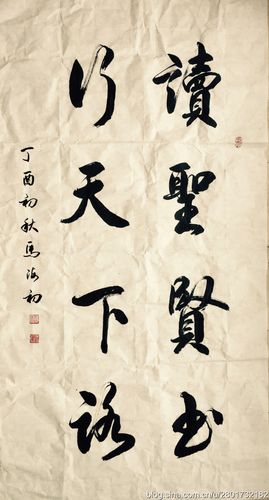 讀聖賢书
行天下路
丁酉初秋馬海初
blog.sina.com.cn/u/2801732182